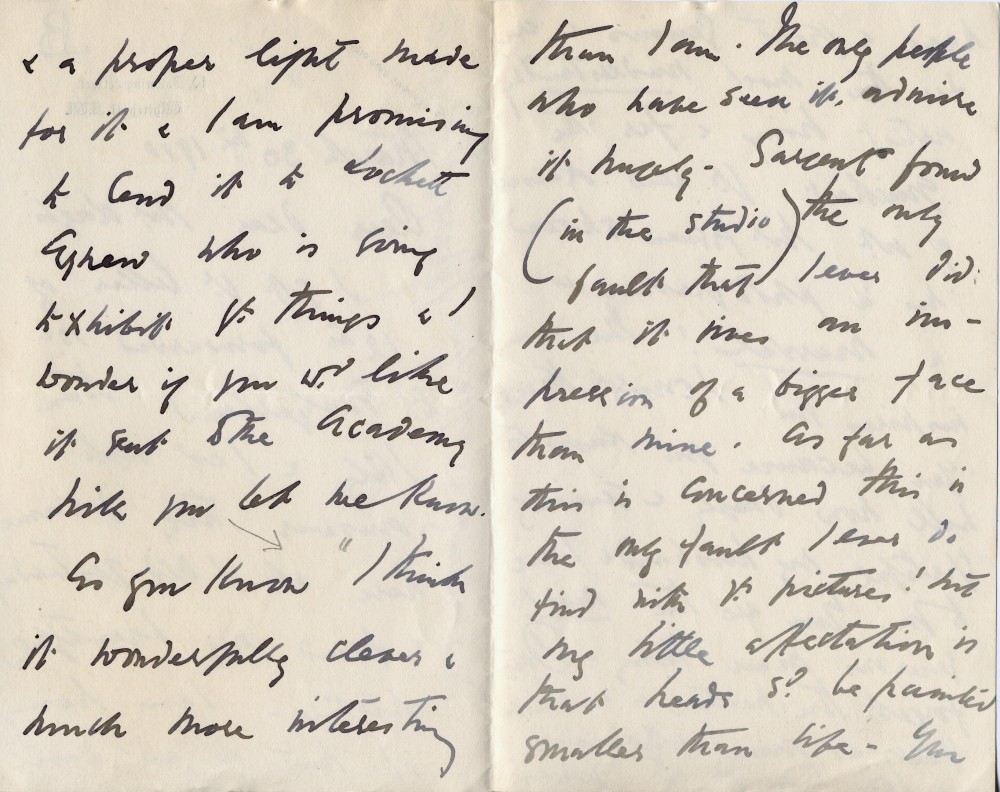 & a proper light made
for it & I am promising
to lend it to Lockett
Agnew who is going
to exhibit yr things & I
wonder if you wd like
it sent to the Academy
will you let me know.
As you know "I think
it wonderfully clever &
much more interesting
than I am. The only people
who have seen it, admire
it hugely - Sargent found
(in the studio) the only
fault that I ever did:
that it gives an im-
pression of a bigger face
than mine. As far as
this is concerned this is
the only fault I ever do
find with yr pictures! but
my little affectation is
that heads sd be painted
smaller than life - You